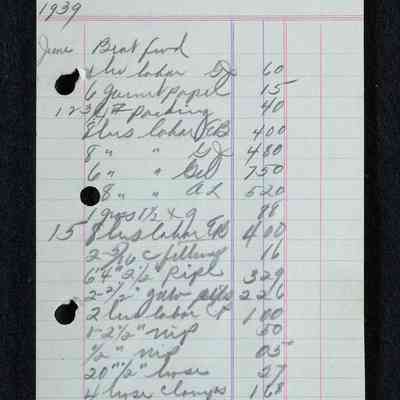 1939
June Boat fund
1 hr labor GJ 60
6 garnet paper 15
1 2 3/4 # packing 40
8 hrs labor TB 4 00
8 " " GJ 4 80
6 " " 7 50
8 " " AL 5 20
1 gros 1 1/2 x 9 88
15 8 hrs labor TB 4 00
2-3/16 c fittings 16
6'4" 2 1/2" Pipe 3 29
2-2 1/2" ells 2 26
2 hrs labor 1 00
1-2 1/2" nip 50
1/2" nip 05
20" 1/2" hose 27
4 hose clamps 1 68